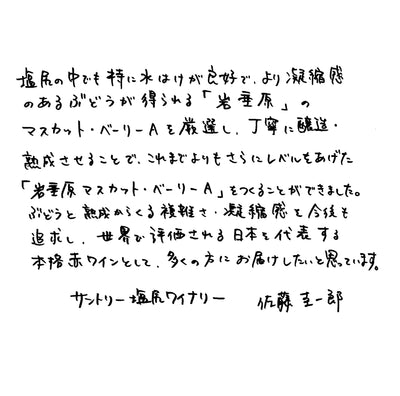 塩尻の中でも特に水はけが良好で、より凝縮感
のあるぶどうが得られる「岩垂原」の
マスカット・ベーリーAを厳選し、丁寧に醸造・
熟成させることで、これまでよりもさらにレベルをあげた
「岩垂原マスカット・ベーリーA」をつくることができました。
ぶどうと熟成からくる複雑さ・凝縮感を今後も
追求し、世界で評価される日本を代表する
本格赤ワインとして、多くの方にお届けしたいと思っています。
サントリー塩尻ワイナリー 佐藤圭一郎